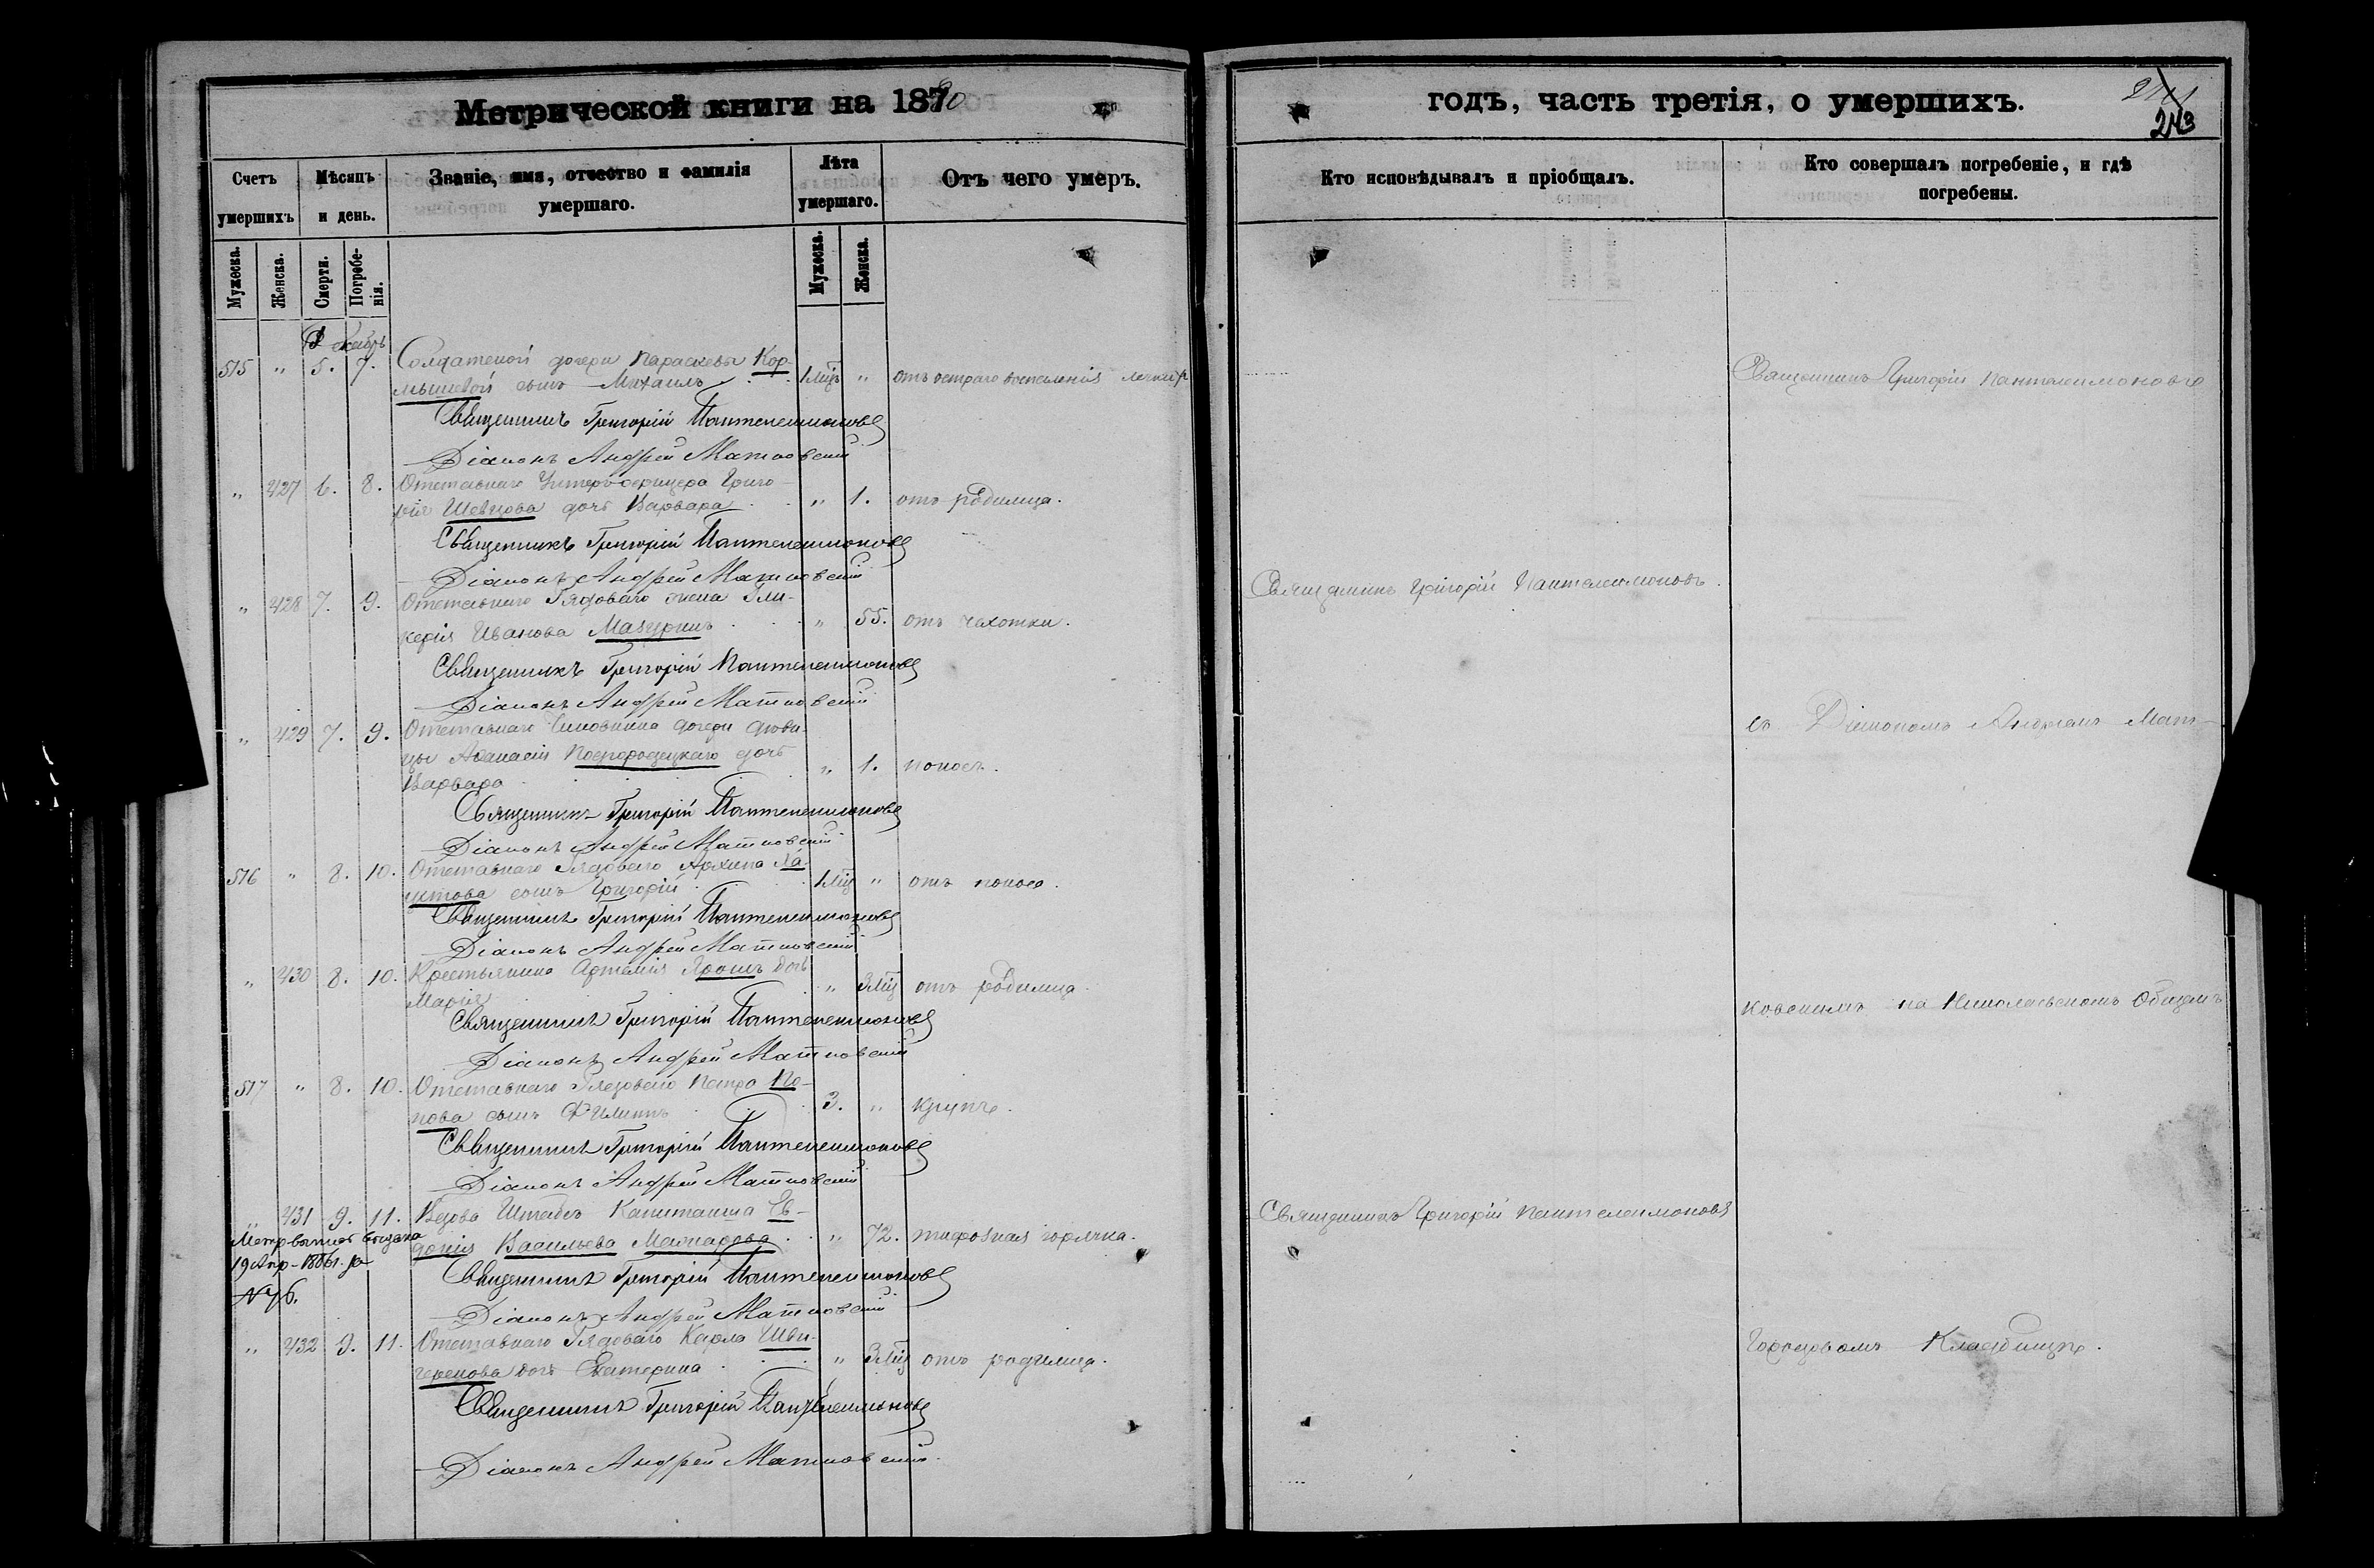 Метрической книги на 1880
годъ, часть третія, о умершихъ.
243
Счетъ умершихъ
Мѣсяцъ и день.
Званіе, имя, отчество и фамилія умершаго.
Лѣта умершаго.
Отъ чего умеръ.
Кто исповѣдывалъ и пріобщалъ.
Кто совершалъ погребеніе, и гдѣ погребены.
Мужеска.
Женска.
Смерти.
Погребенія.
Мужеска.
Женска.
515 " 5. 7. Солдатской дочери Параскевы Кор-
мышевой сынъ Михаилъ 1 мѣц " отъ остраго воспаленія
Священникъ Григорій Пантелеимоновъ
Священникъ Григорій Пантелеимоновъ
Діаконъ Андрей Матковскій
" 427 6. 8. Отставнаго Унтеръ-офицера Григо-
рія Шевцова дочь Варвара " 1. отъ родимца.
Священникъ Григорій Пантелеимоновъ
Діаконъ Андрей Матковскій
" 428 7. 9. Отставнаго Рядоваго жена Гли-
керія Иванова Мазуринъ " 55. отъ чахотки.
Священникъ Григорій Пантелеимоновъ.
Священникъ Григорій Пантелеимоновъ
Діаконъ Андрей Матковскій
" 429 7. 9. Отставнаго Чиновника дочери дѣви-
цы Аѳанасіи дочь
Варвара " 1. поносъ.
съ Діакономъ Андреемъ Мат-
Священникъ Григорій Пантелеимоновъ
Діаконъ Андрей Матковскій
516 " 8. 10. Отставнаго Рядоваго Архипа Ла-
уктова сынъ Григорій 1 мѣц " отъ поноса.
Священникъ Григорій Пантелеимоновъ
Діаконъ Андрей Матковскій
" 430 8. 10. Крестьянина Артемія Ярошъ дочь
Марія " 3 мѣц отъ родимца.
ковскимъ на Николаевскомъ Общемъ
Священникъ Григорій Пантелеимоновъ
Діаконъ Андрей Матковскій
517 " 8. 10. Отставнаго Рядоваго Петра По-
пова сынъ Филиппъ 3. " крупъ.
Священникъ Григорій Пантелеимоновъ
Діаконъ Андрей Матковскій
" 431 9. 11. Вдова Штабсъ Капитанша Ев-
докія Васильева " 72. тифозная горячка.
Священникъ Григорій Пантелеимоновъ
19 Апр. 1886 г. за
№ 76.
Священникъ Григорій Пантелеимоновъ
Діаконъ Андрей Матковскій
" 432 9. 11. Отставнаго Рядоваго Карла Шви-
геренова дочь Екатерина " 3 мѣц отъ родимца.
Городовомъ Кладбищѣ.
Священникъ Григорій Пантелеимоновъ
Діаконъ Андрей Матковскій